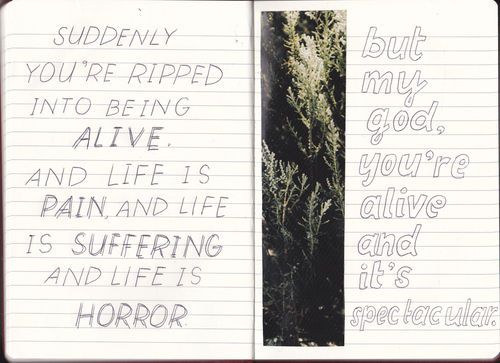 SUDDENLY
YOU'RE RIPPED
INTO BEING
ALIVE.
AND LIFE IS
PAIN, AND LIFE
IS SUFFERING
AND LIFE IS
HORROR.
but
my
god,
you're
alive
and
it's
spectacular.